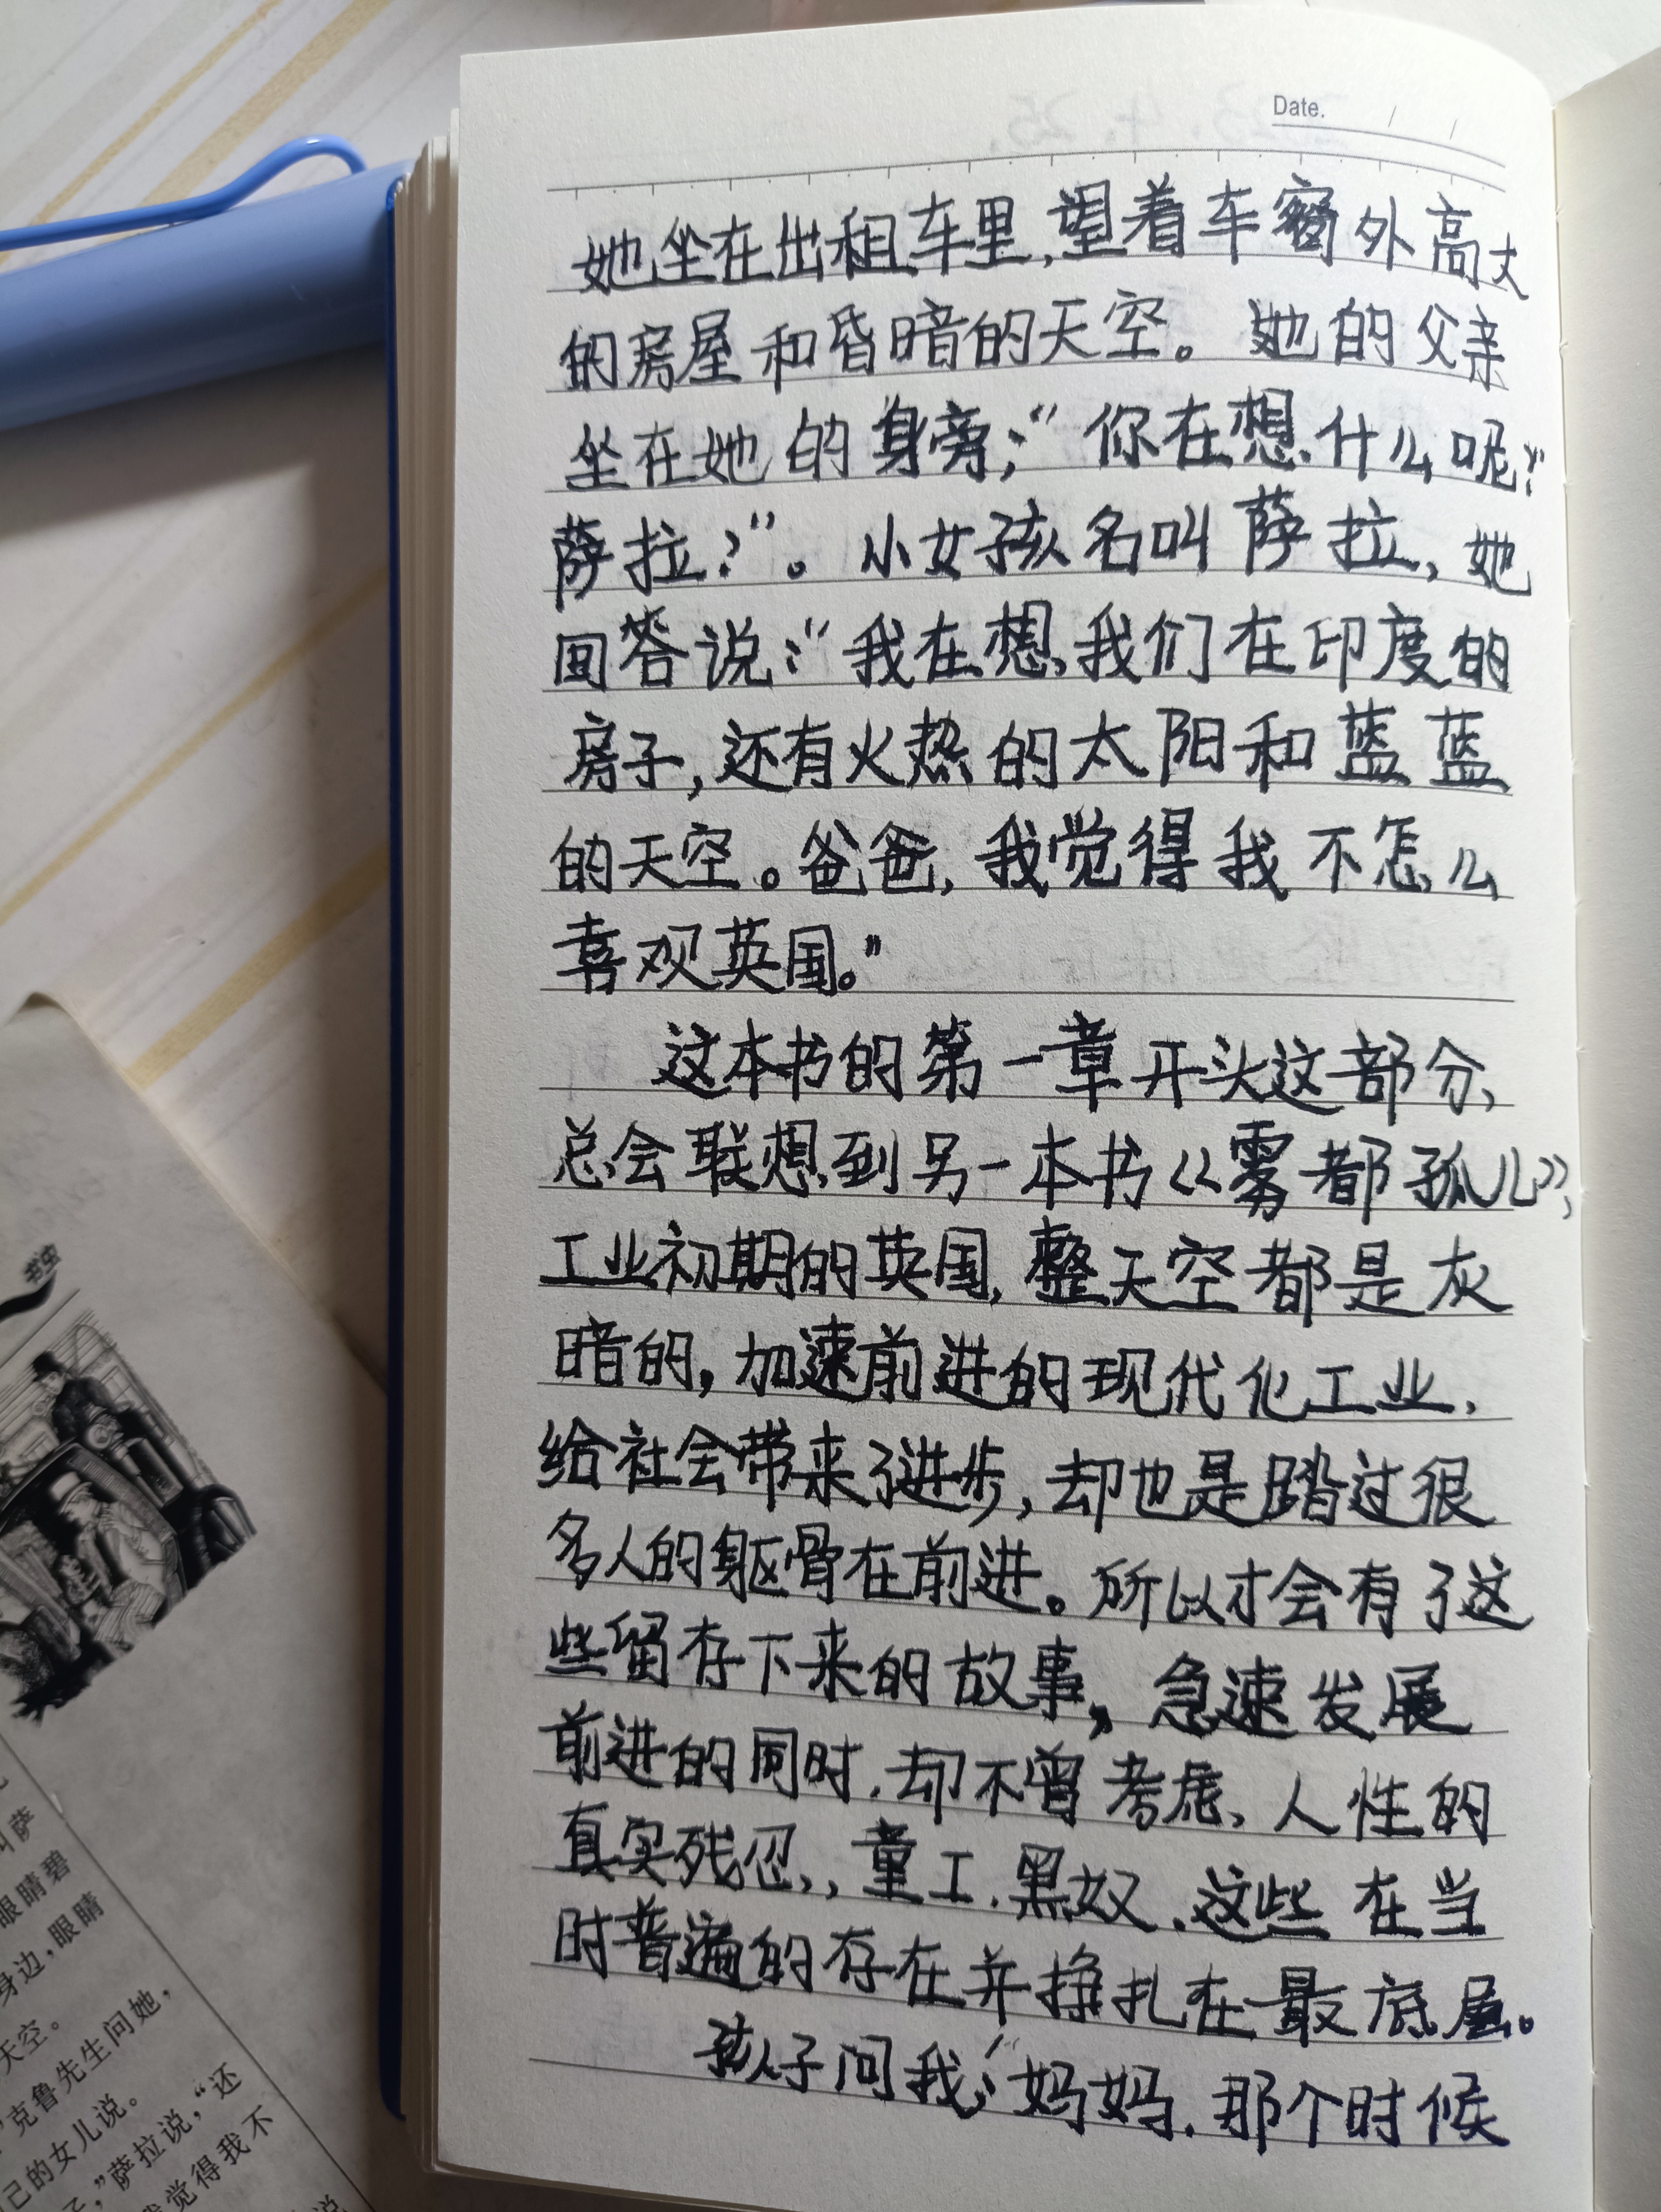 Date. / /
她坐在出租车里,望着车窗外高大
的房屋和昏暗的天空。她的父亲
坐在她的身旁;“你在想什么呢?
萨拉?”。小女孩名叫萨拉,她
回答说:“我在想,我们在印度的
房子,还有火热的太阳和蓝蓝
的天空。爸爸,我觉得我不怎么
喜观英国。”
这本书的第一章开头这部分、
总会联想到另一本书《雾都孤儿》,
工业初期的英国,整天空都是灰
暗的,加速前进的现代化工业,
给社会带来了进步,却也是踏过很
多人的躯骨在前进。所以才会有了这
些留存下来的故事,急速发展
前进的同时,却不曾考虑、人性的
真实残忍,,童工、黑奴、这些在当
时普遍的存在并挣扎在最底层。
孩子问我:“妈妈,那个时候
书虫
叫萨
眼睛碧
身边,眼睛
天空。
”克鲁先生问她,
己的女儿说。
子,”萨拉说,“还
觉得我不
说